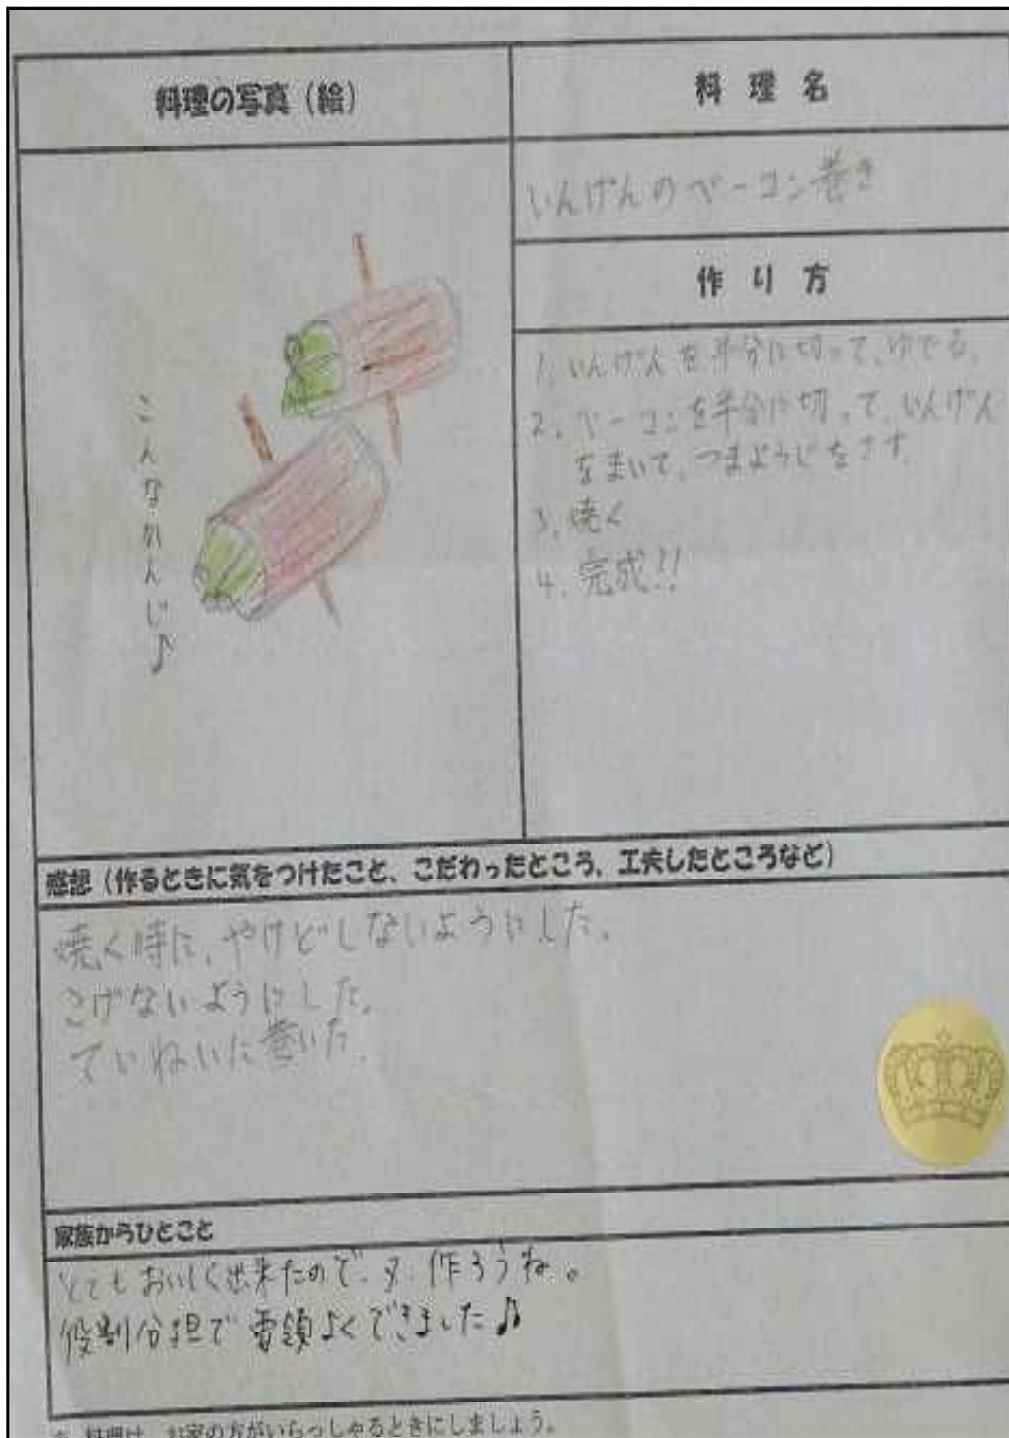 料理の写真(絵)
こんなかんじ♪
料理名
いんげんのベーコン巻き
作り方
1. いんげんを半分に切って、ゆでる。
2. ベーコンを半分に切って、いんげん
をまいて、つまようじをさす。
3. 焼く
4. 完成!!
感想(作るときに気をつけたこと、こだわったところ、工夫したところなど)
焼く時に、やけどしないようにした。
こげないようにした。
ていねいに巻いた。
家族からひとこと
とてもおいしく出来たので、又、作ろうね。
役割分担で要領よくできました♪
料理は、お家の方がいらっしゃるときにしましょう。